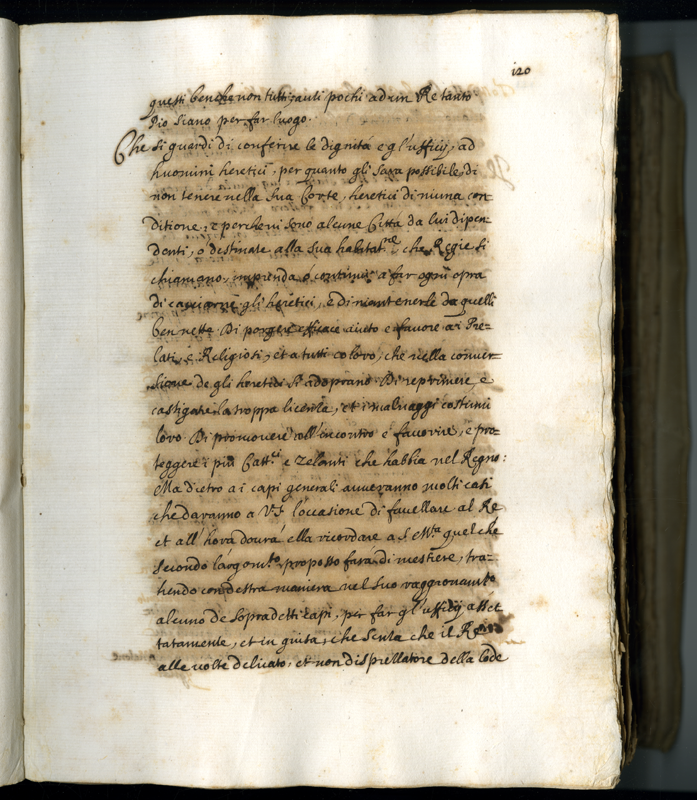 120
questi benche non tutti, anzi pochi ad un Re tanto
Pio siano per far luogo.
Che si guardi di conferire le dignitá e gl'ufficij, ad
huomini heretici, per quanto gli sara possibile, di
non tenere nella sua Corte, heretici di niuna con=
ditione, e perche vi sono alcune Cittá da lui dipen=
denti, ó destinate alla sua habitat.ne che Regie si
chiamano, imprenda ó continui a far ogni opra
di cacciarne gli heretici, e di mantenerle da quelli
ben nette. Di porgere efficace aiuto e favore ai Pre=
lati, e Religiosi, et a tutti coloro, che nella conver=
sione de gli heretici si adoprano. Di reprimere, e
castigare la troppa licenza, et i malvaggi costumi
loro. Di promovere all'incontro e favorire, e pro=
teggere i piú Catt.ci e zelanti che habbia nel Regno:
Ma dietro ai capi generali avveranno molti casi
che daranno a VS l'occasione di favellare al Re
et all'hora dourá ella ricordare a S. M.tá quel che
secondo l'argom.to proposto fará di mestiere, tra=
hendo con destra maniera nel suo raggionam.to
alcuno de sopradetti capi, per far gl'ufficij affet
tatamente, et in guisa, che senza che il Re
alle volte delicato, et non disprezzatore della lode